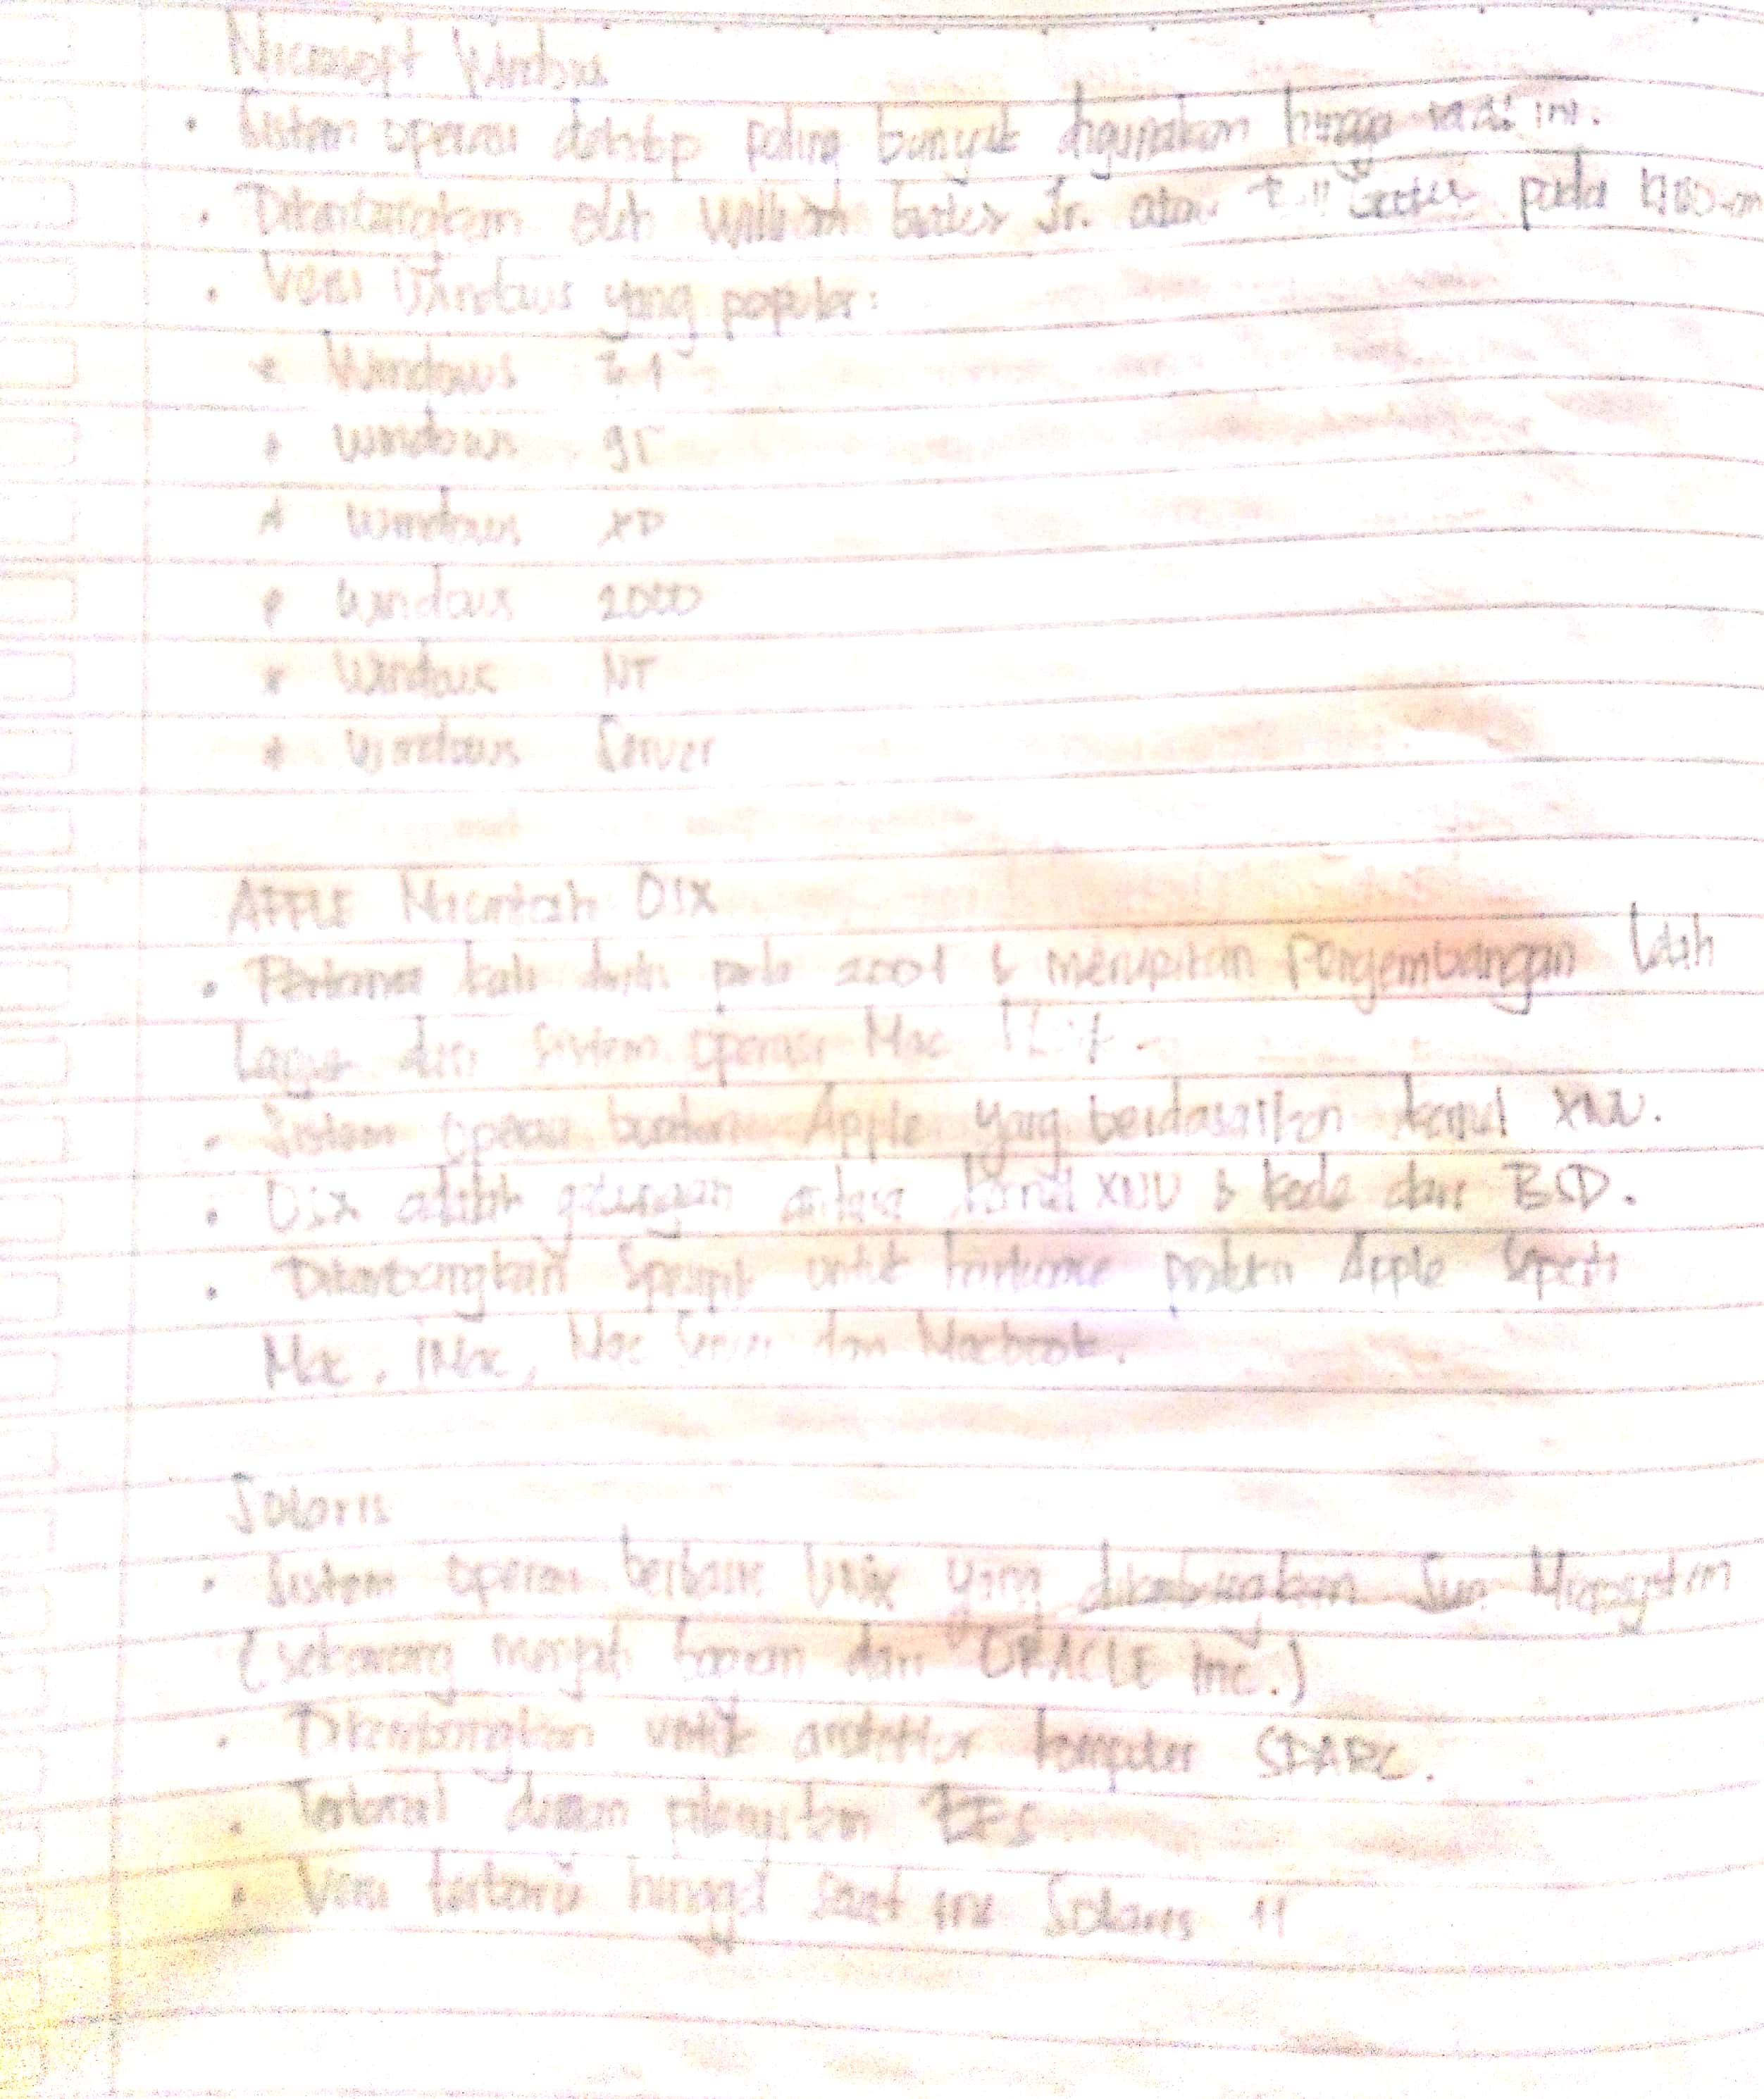 Microsoft Windows
• Sistem operasi desktop paling banyak digunakan hingga saat ini.
• Dikembangkan oleh William Gates Jr. atau Bill Gates pada 1980-an
• Versi Windows yang populer:
* Windows 3.1
* Windows 95
* Windows XP
* Windows 2000
* Windows NT
* Windows Server
APPLE Macintosh OSX
• Pertama kali dirilis pada 2001 & merupakan Pengembangan lebih
lanjut dari sistem operasi Mac
• Sistem operasi buatan Apple yang berdasarkan kernel XNU.
• OSX adalah gabungan antara kernel XNU & kode dari BSD.
• Dikembangkan spesifik untuk hardware produksi Apple seperti
Mac, iMac, Mac Server dan Macbook.
Solaris
• Sistem operasi berbasis Unix yang dikembangkan Sun Microsystem
(sekarang menjadi bagian dari ORACLE Inc.)
• Dikembangkan untuk arsitektur komputer SPARC.
• Terkenal dengan filesystem ZFS
• Versi terbaru hingga saat ini Solaris 11